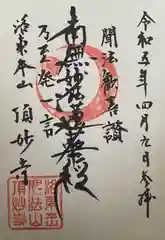 令和五年四月九日参拝
聞法歓喜讃
南無妙法蓮華経
乃至発一言
洛東本山 頂妙寺
聞法山
頂妙寺